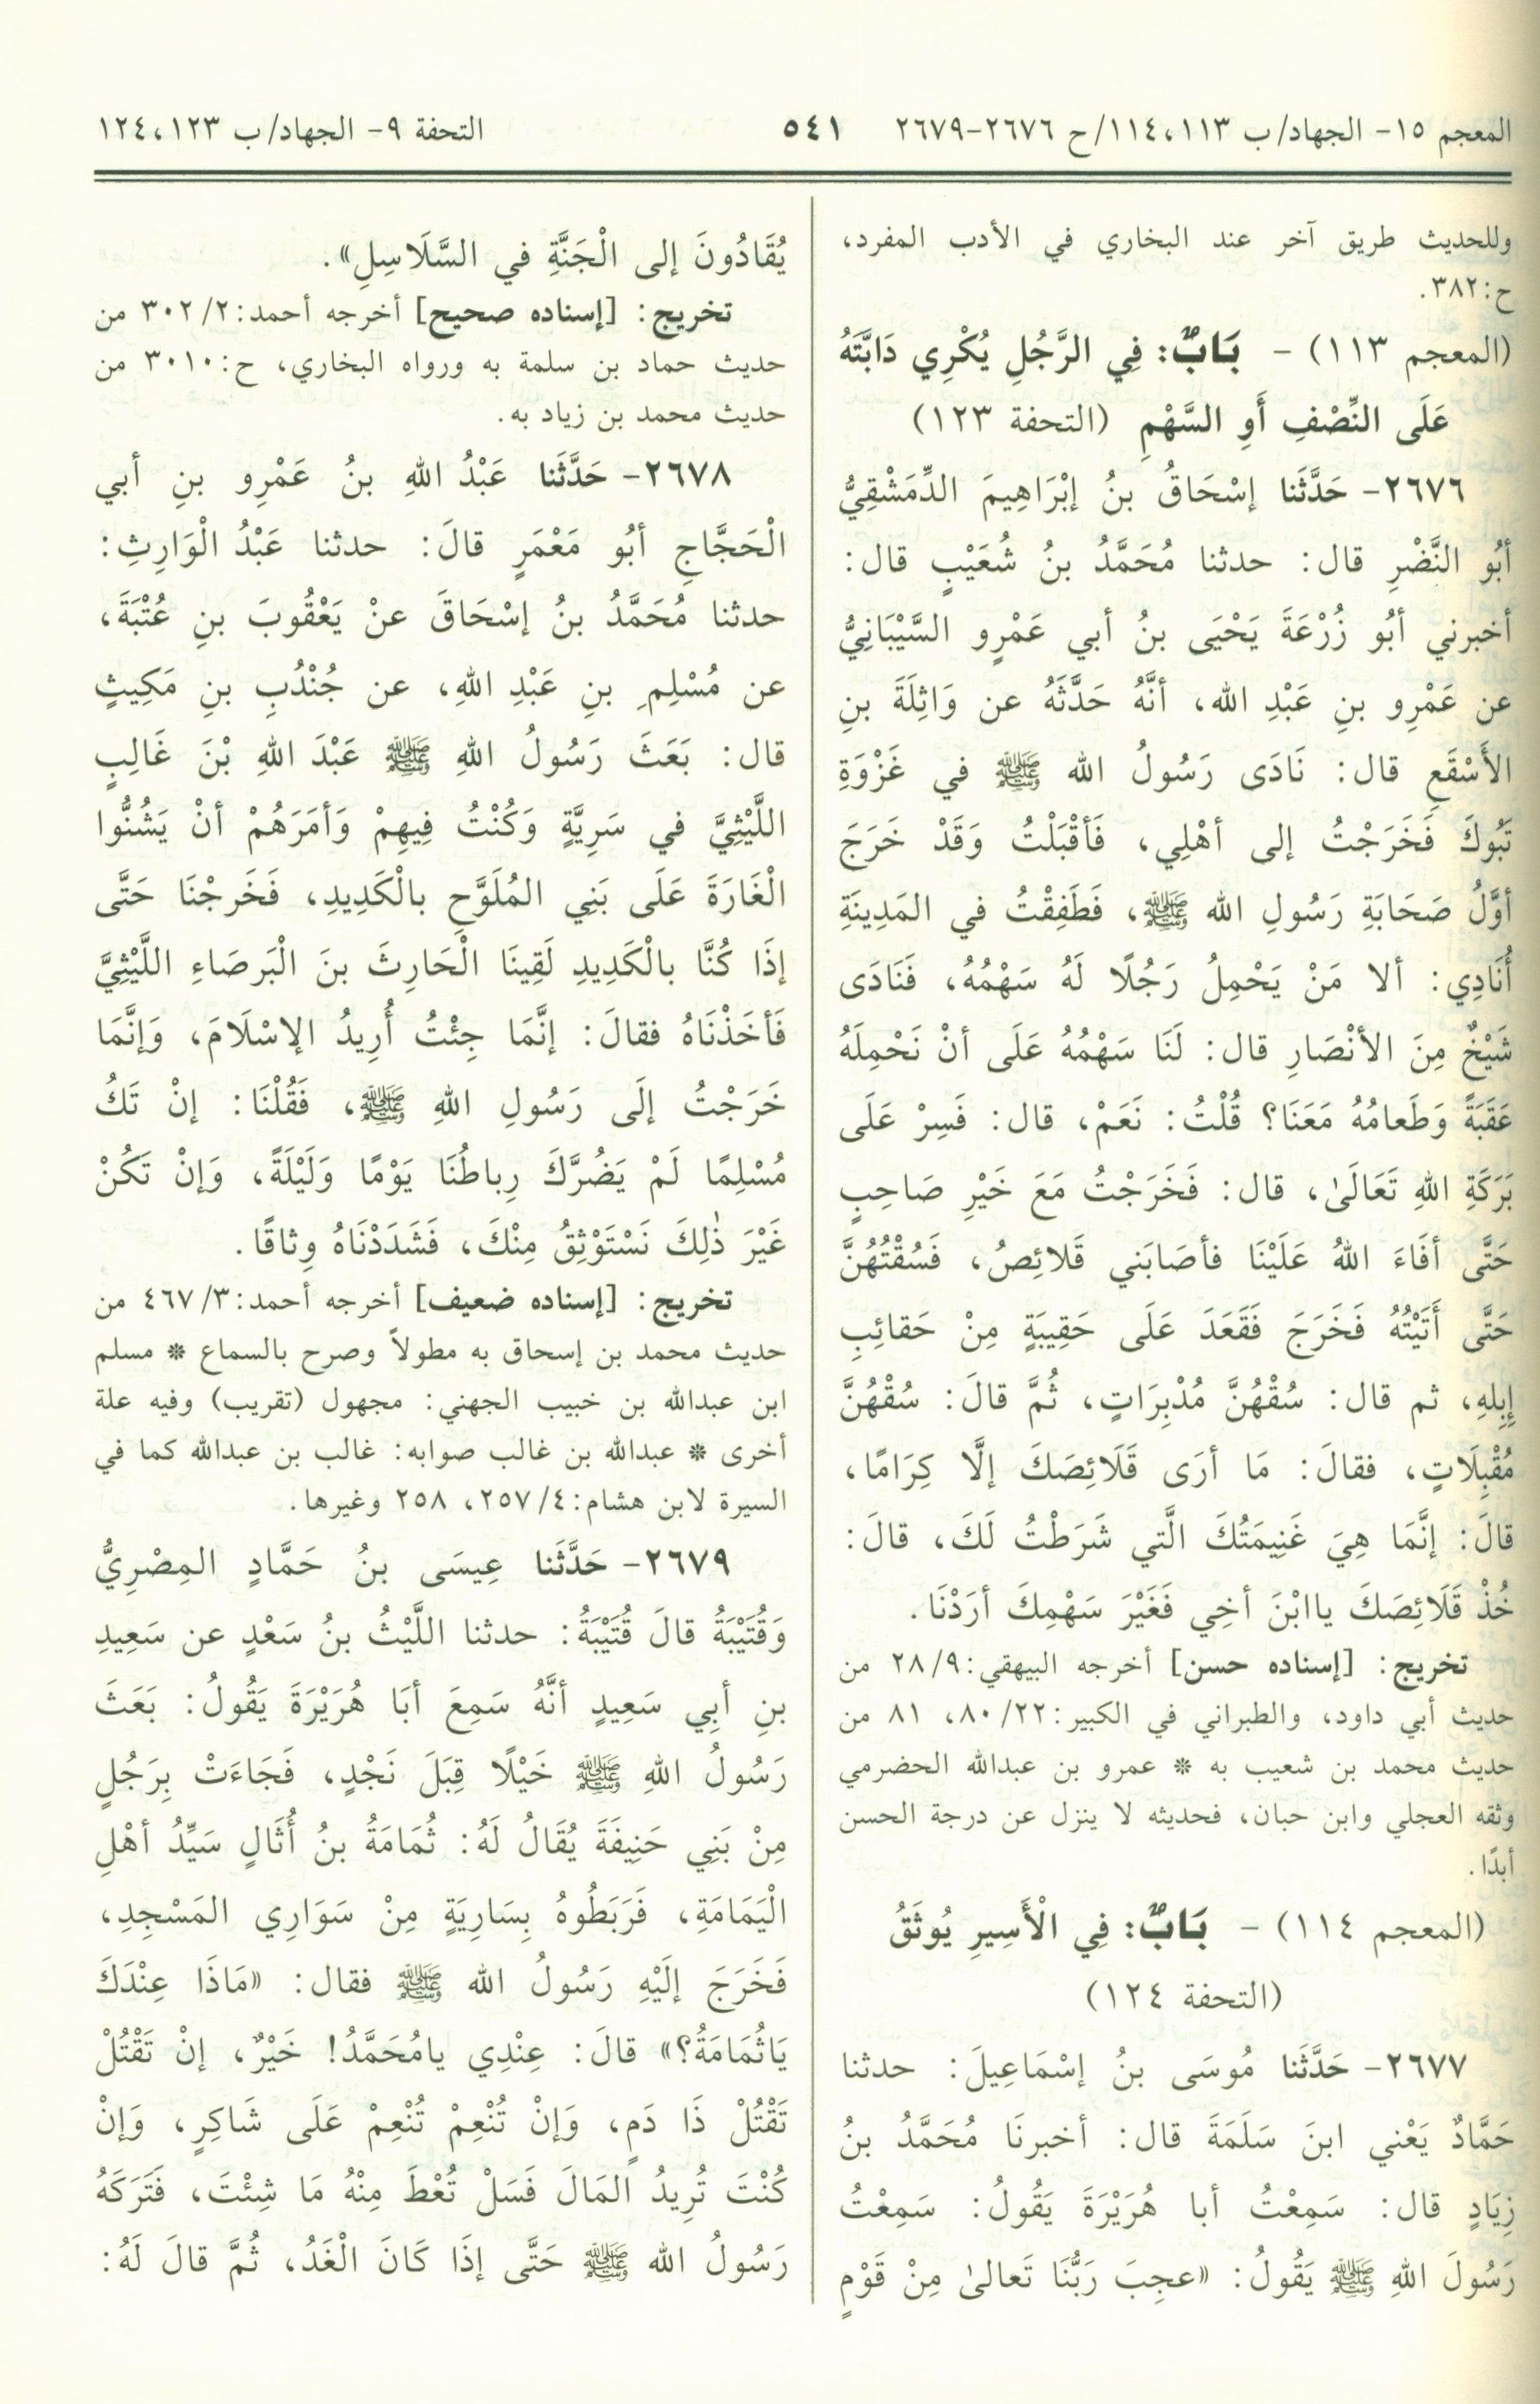 المعجم ١٥- الجهاد/ ب ١١٣، ١١٤/ ح ٢٦٧٦-٢٦٧٩
٥٤١
التحفة ٩- الجهاد/ ب ١٢٣، ١٢٤
وللحديث طريق آخر عند البخاري في الأدب المفرد،
ح:٣٨٢.
(المعجم ١١٣) - بَابٌ: فِي الرَّجُلِ يُكْرِي دَابَّتَهُ
عَلَى النِّصْفِ أَوِ السَّهْمِ (التحفة ١٢٣)
٢٦٧٦- حَدَّثَنا إسْحَاقُ بنُ إبْرَاهِيمَ الدِّمَشْقِيُّ
أبُو النَّضْرِ قال: حدثنا مُحَمَّدُ بنُ شُعَيْبٍ قال:
أخبرني أبُو زُرْعَةَ يَحْيَى بنُ أبي عَمْرٍو السَّيْبَانِيُّ
عن عَمْرِو بنِ عَبْدِ الله، أنَّهُ حَدَّثَهُ عن وَاثِلَةَ بنِ
الأَسْقَعِ قال: نَادَى رَسُولُ الله ﷺ في غَزْوَةِ
تَبُوكَ فَخَرَجْتُ إلى أهْلِي، فَأقْبَلْتُ وَقَدْ خَرَجَ
أوَّلُ صَحَابَةِ رَسُولِ الله ﷺ، فَطَفِقْتُ في المَدِينَةِ
أُنَادِي: ألا مَنْ يَحْمِلُ رَجُلًا لَهُ سَهْمُهُ، فَنَادَى
شَيْخٌ مِنَ الأنْصَارِ قال: لَنَا سَهْمُهُ عَلَى أنْ نَحْمِلَهُ
عَقَبَةً وَطَعامُهُ مَعَنَا؟ قُلْتُ: نَعَمْ، قال: فَسِرْ عَلَى
بَرَكَةِ اللهِ تَعَالَىٰ، قال: فَخَرَجْتُ مَعَ خَيْرِ صَاحِبٍ
حَتَّى أفَاءَ اللهُ عَلَيْنَا فأصَابَني قَلائِصُ، فَسُقْتُهُنَّ
حَتَّى أَتَيْتُهُ فَخَرَجَ فَقَعَدَ عَلَى حَقِيبَةٍ مِنْ حَقائِبِ
إِبِلِهِ، ثم قال: سُقْهُنَّ مُدْبِرَاتٍ، ثُمَّ قالَ: سُقْهُنَّ
مُقْبِلَاتٍ، فقالَ: مَا أرَى قَلَائِصَكَ إلَّا كِرَامًا،
قالَ: إنَّمَا هِيَ غَنِيمَتُكَ الَّتي شَرَطْتُ لَكَ، قالَ:
خُذْ قَلَائِصَكَ ياابْنَ أخِي فَغَيْرَ سَهْمِكَ أرَدْنَا.
تخريج: [إسناده حسن] أخرجه البيهقي:٢٨/٩ من
حديث أبي داود، والطبراني في الكبير:٨٠/٢٢، ٨١ من
حديث محمد بن شعيب به * عمرو بن عبدالله الحضرمي
وثقه العجلي وابن حبان، فحديثه لا ينزل عن درجة الحسن
أبدًا.
(المعجم ١١٤) - بَابٌ: فِي الْأَسِيرِ يُوثَقُ
(التحفة ١٢٤)
٢٦٧٧- حَدَّثَنا مُوسَى بنُ إسْمَاعِيلَ: حدثنا
حَمَّادٌ يَعْني ابنَ سَلَمَةَ قال: أخبرنَا مُحَمَّدُ بنُ
زِيَادٍ قال: سَمِعْتُ أبا هُرَيْرَةَ يَقُولُ: سَمِعْتُ
رَسُولَ اللهِ ﷺ يَقُولُ: «عجِبَ رَبُّنَا تَعالىٰ مِنْ قَوْمٍ
يُقَادُونَ إلى الْجَنَّةِ في السَّلَاسِلِ».
تخريج: [إسناده صحيح] أخرجه أحمد:٣٠٢/٢ من
حديث حماد بن سلمة به ورواه البخاري، ح:٣٠١٠ من
حديث محمد بن زياد به.
٢٦٧٨- حَدَّثَنا عَبْدُ اللهِ بنُ عَمْرِو بنِ أبي
الْحَجَّاجِ أبُو مَعْمَرٍ قالَ: حدثنا عَبْدُ الْوَارِثِ:
حدثنا مُحَمَّدُ بنُ إسْحَاقَ عنْ يَعْقُوبَ بنِ عُتْبَةَ،
عن مُسْلِمِ بنِ عَبْدِ اللهِ، عن جُنْدُبِ بنِ مَكِيثٍ
قال: بَعَثَ رَسُولُ اللهِ ﷺ عَبْدَ اللهِ بْنَ غَالِبٍ
اللَّيْثِيَّ في سَرِيَّةٍ وَكُنْتُ فِيهِمْ وَأمَرَهُمْ أنْ يَشُنُّوا
الْغَارَةَ عَلَى بَنِي المُلَوَّحِ بالْكَدِيدِ، فَخَرجْنَا حَتَّى
إذَا كُنَّا بالْكَدِيدِ لَقِينَا الْحَارِثَ بنَ الْبَرصَاءِ اللَّيْثِيَّ
فَأخَذْنَاهُ فقالَ: إنَّمَا جِئْتُ أُرِيدُ الإسْلَامَ، وَإنَّمَا
خَرَجْتُ إلَى رَسُولِ اللهِ ﷺ، فَقُلْنَا: إنْ تَكُ
مُسْلِمًا لَمْ يَضُرَّكَ رِباطُنَا يَوْمًا وَلَيْلَةً، وَإنْ تَكُنْ
غَيْرَ ذٰلِكَ نَسْتَوْثِقُ مِنْكَ، فَشَدَدْنَاهُ وِثاقًا.
تخريج: [إسناده ضعيف] أخرجه أحمد:٤٦٧/٣ من
حديث محمد بن إسحاق به مطولاً وصرح بالسماع * مسلم
ابن عبدالله بن خبيب الجهني: مجهول (تقريب) وفيه علة
أخرى * عبدالله بن غالب صوابه: غالب بن عبدالله كما في
السيرة لابن هشام:٢٥٧/٤، ٢٥٨ وغيرها.
٢٦٧٩- حَدَّثَنا عِيسَى بنُ حَمَّادٍ المِصْرِيُّ
وَقُتَيْبَةُ قالَ قُتَيْبَةُ: حدثنا اللَّيْثُ بنُ سَعْدٍ عن سَعِيدِ
بنِ أبِي سَعِيدٍ أنَّهُ سَمِعَ أبَا هُرَيْرَةَ يَقُولُ: بَعَثَ
رَسُولُ اللهِ ﷺ خَيْلًا قِبَلَ نَجْدٍ، فَجَاءَتْ بِرَجُلٍ
مِنْ بَنِي حَنِيفَةَ يُقَالُ لَهُ: ثُمَامَةُ بنُ أُثَالٍ سَيِّدُ أهْلِ
الْيَمَامَةِ، فَرَبَطُوهُ بِسَارِيَةٍ مِنْ سَوَارِي المَسْجِدِ،
فَخَرَجَ إلَيْهِ رَسُولُ الله ﷺ فقال: «مَاذَا عِنْدَكَ
يَاثُمَامَةُ؟» قالَ: عِنْدِي يامُحَمَّدُ! خَيْرٌ، إنْ تَقْتُلْ
تَقْتُلْ ذَا دَمٍ، وَإنْ تُنْعِمْ تُنْعِمْ عَلَى شَاكِرٍ، وَإنْ
كُنْتَ تُرِيدُ المَالَ فَسَلْ تُعْطَ مِنْهُ مَا شِئْتَ، فَتَرَكَهُ
رَسُولُ الله ﷺ حَتَّى إذَا كَانَ الْغَدُ، ثُمَّ قالَ لَهُ: